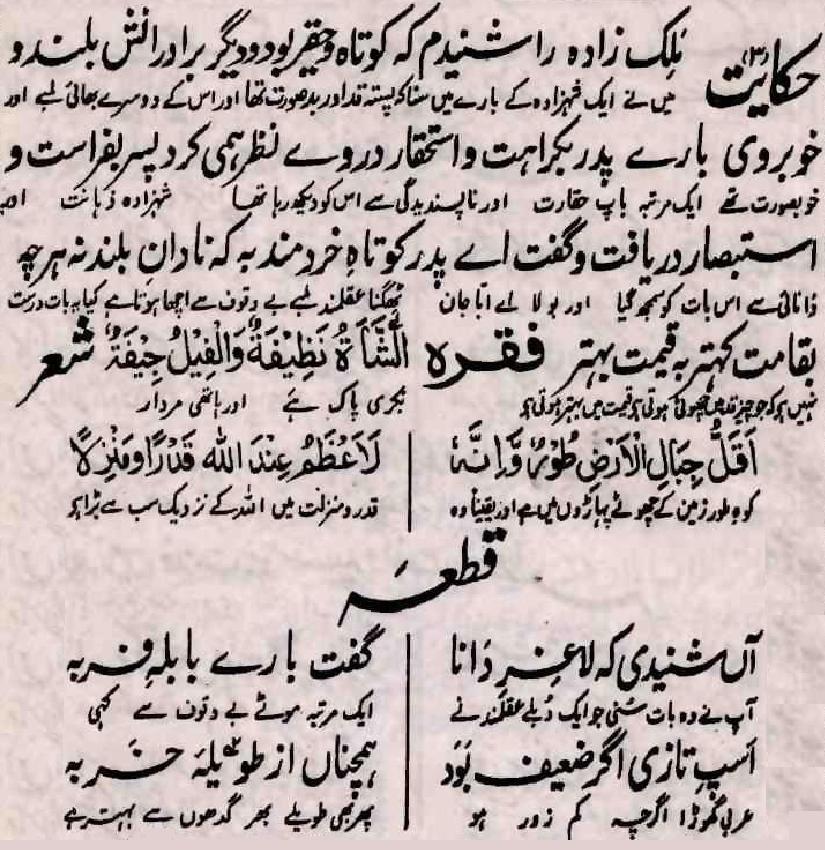 حکایت (۳) ملک زاده را شنیدم که کوتاه و حقیر بود و دیگر برادرانش بلند و
میں نے ایک شہزادہ کے بارے میں سنا کہ پستہ قد اور بدصورت تھا اور اس کے دوسرے بھائی لمبے اور
خوبروی بارے پدر بکراہت و استحقار در وے نظر ہمی کرد پسر بفراست و
خوبصورت تھے ایک مرتبہ باپ حقارت اور ناپسندیدگی سے اس کو دیکھ رہا تھا شہزادہ ذہانت اور
استبصار دریافت و گفت اے پدر کوتاہِ خردمند بہ کہ نادانِ بلند نہ ہرچہ
دانائی سے اس بات کو سمجھ گیا اور بولا اے ابا جان ٹھگنا عقلمند لمبے بے وقوف سے اچھا ہوتا ہے کیا یہ بات درست
بقامت کہتر بہ قیمت بہتر فقرہ اَلشَّاۃُ نَظِیْفَۃٌ وَالْفِیْلُ جِیْفَۃٌ شعر
نہیں ہے کہ جو چیز قد میں چھوٹی ہوتی ہے قیمت میں بہتر ہوتی ہے بکری پاک ہے اور ہاتھی مردار
اَقَلُّ جِبَالِ الْاَرْضِ طُوْرٌ وَّاِنَّہٗ لَاَعْظَمُ عِنْدَ اللہِ قَدْرًا وَّمَنْزِلًا
کوہِ طور زمین کے چھوٹے پہاڑوں میں ہے اور یقیناً وہ قدر و منزلت میں اللہ کے نزدیک سب سے بڑا ہے
قطعہ
آں شنیدی کہ لاغرِ دانا گفت بارے بابلہِ فربہ
آپ نے وہ بات سُنی جو ایک دُبلے عقلمند نے ایک مرتبہ موٹے بے وقوف سے کہی
اَسپِ تازی اگر ضعیف بَوَد ہمچناں از طویلۂ خر بہ
عربی گھوڑا اگرچہ کم زور ہو پھر بھی طویلے بھر گدھوں سے بہتر ہے